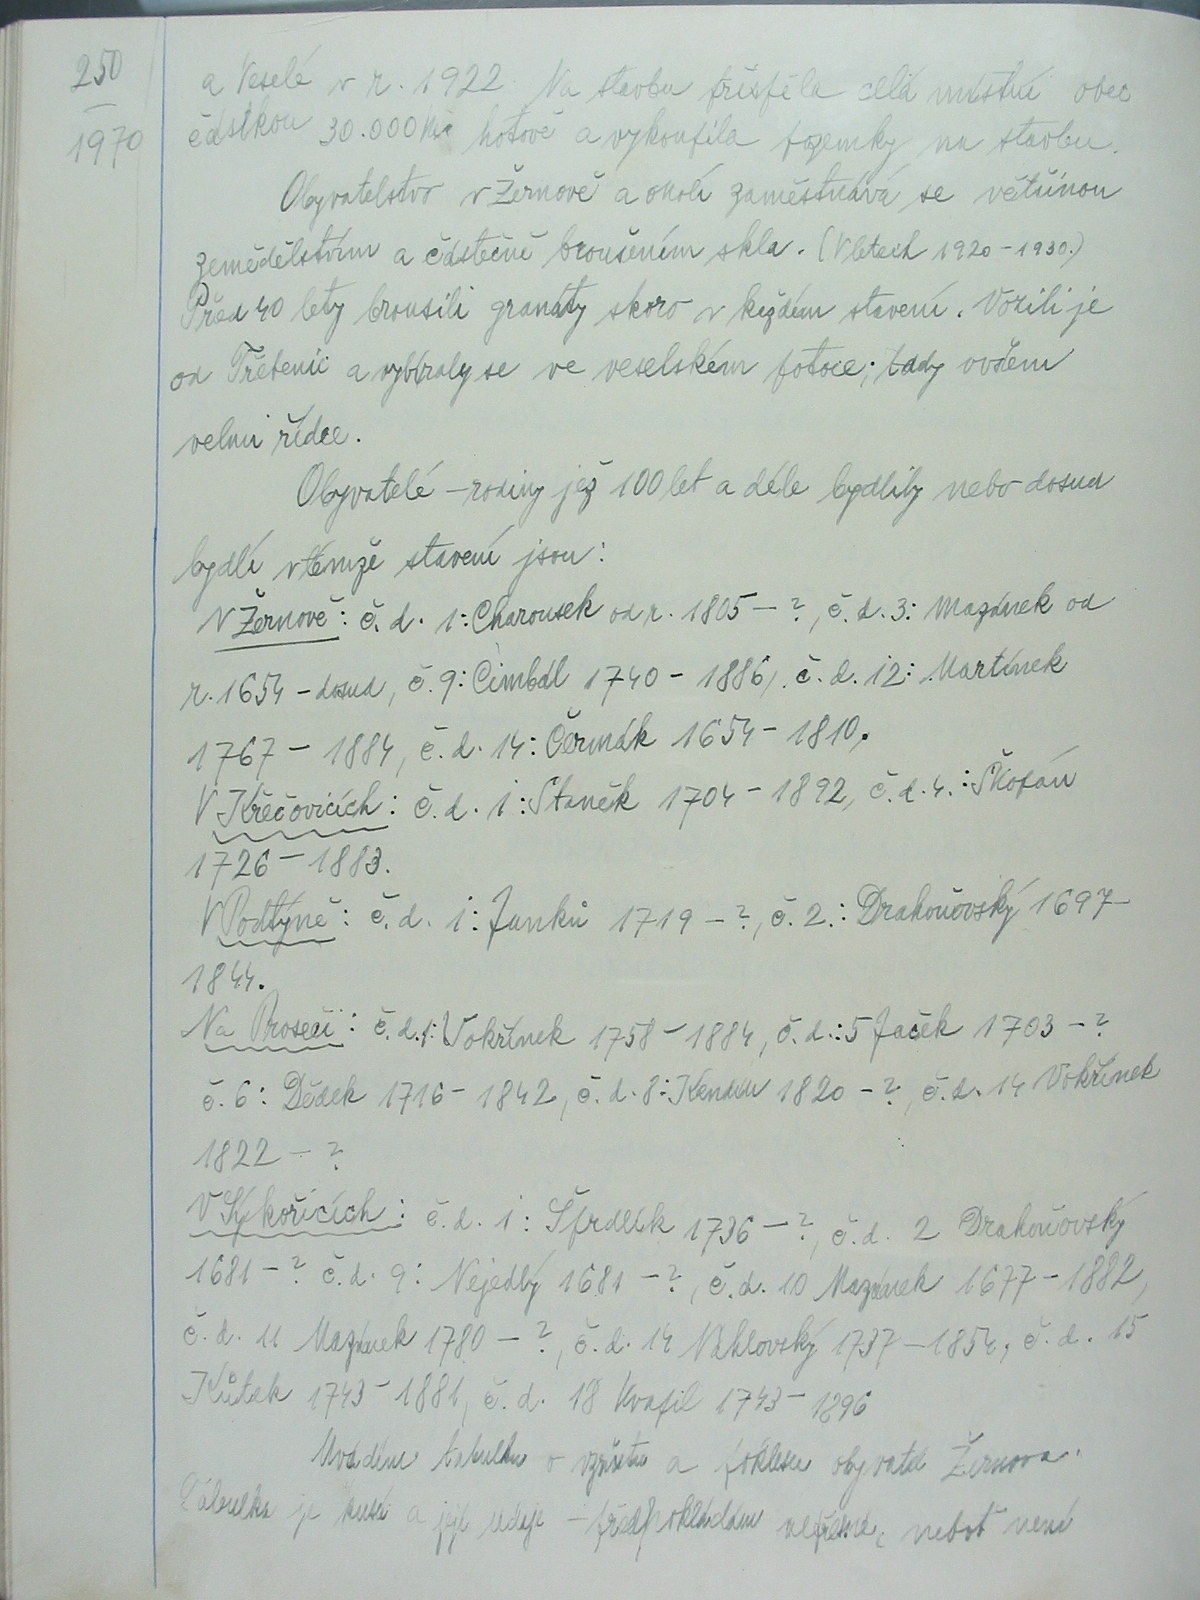 250
1970
a Veselé v r. 1922 Na stavbu přispěla celá místní obec
částkou 30.000 Kč hotově a vykoupila pozemky na stavbu.
Obyvatelstvo v Žernově a okolí zaměstnává se většinou
zemědělstvím a částečně broušením skla. (V letech 1920-1930.)
Před 40 lety brousili granáty skoro v každém stavení. Vozili je
od Třebenic a vybíraly se ve veselském potoce; tady ovšem
velmi řídce.
Obyvatelé - rodiny jež 100 let a déle bydlily nebo dosud
bydlí v témže stavení jsou:
V Žernově: č. d. 1: Charousek od r. 1805 - ?, č. d. 3: Mazánek od
r. 1654 - dosud, č. 9: Cimbál 1740 - 1886, č. d. 12: Martínek
1767 - 1884, č. d. 14: Čermák 1654 - 1810.
V Křečovicích: č. d. 1: Staněk 1704 - 1892, č. d. 4.: Škopán
1726 - 1883.
V Podtýně: č. d. 1: Janků 1719 - ?, č. 2.: Drahoňovský 1697-
1844.
Na Proseči: č. d. 1: Vokřínek 1758 - 1884, č. d.: 5 Jaček 1703 - ?
č. 6: Dědek 1716 - 1842, č. d. 8: 1820 - ?, č. d. 14 Vokřínek
1822 - ?
V Sýkořicích: č. d. 1: Šfrdlík 1736 - ?, č. d. 2 Drahoňovský
1681 - ? č. d. 9: Nejedlý 1681 - ?, č. d. 10 Mazánek 1677 - 1882,
č. d. 11 Mazánek 1780 - ?, č. d. 14 Náhlovský 1737 - 1854, č. d. 15
Kůtek 1743 - 1881, č. d. 18 Kvapil 1743 - 1896
Uvádím tabulku o vzrůstu a poklesu obyvatel Žernova.
Tabulka je kusá a její údaje - předpokládám nepřesné, neboť není